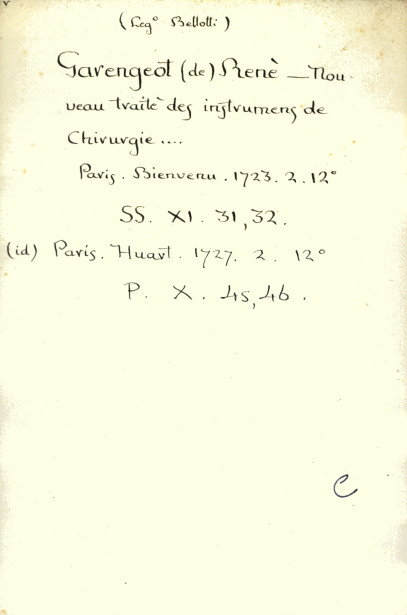 (Leg° Bellotti)
Garengeot (de) Renè — Nou
veau traitè des instrumens de
Chirurgie ....
Paris. Bienvenu. 1723. 2. 12°
SS. XI. 31, 32.
(id) Paris. Huart. 1727. 2. 12°
P. X. 45, 46.
C